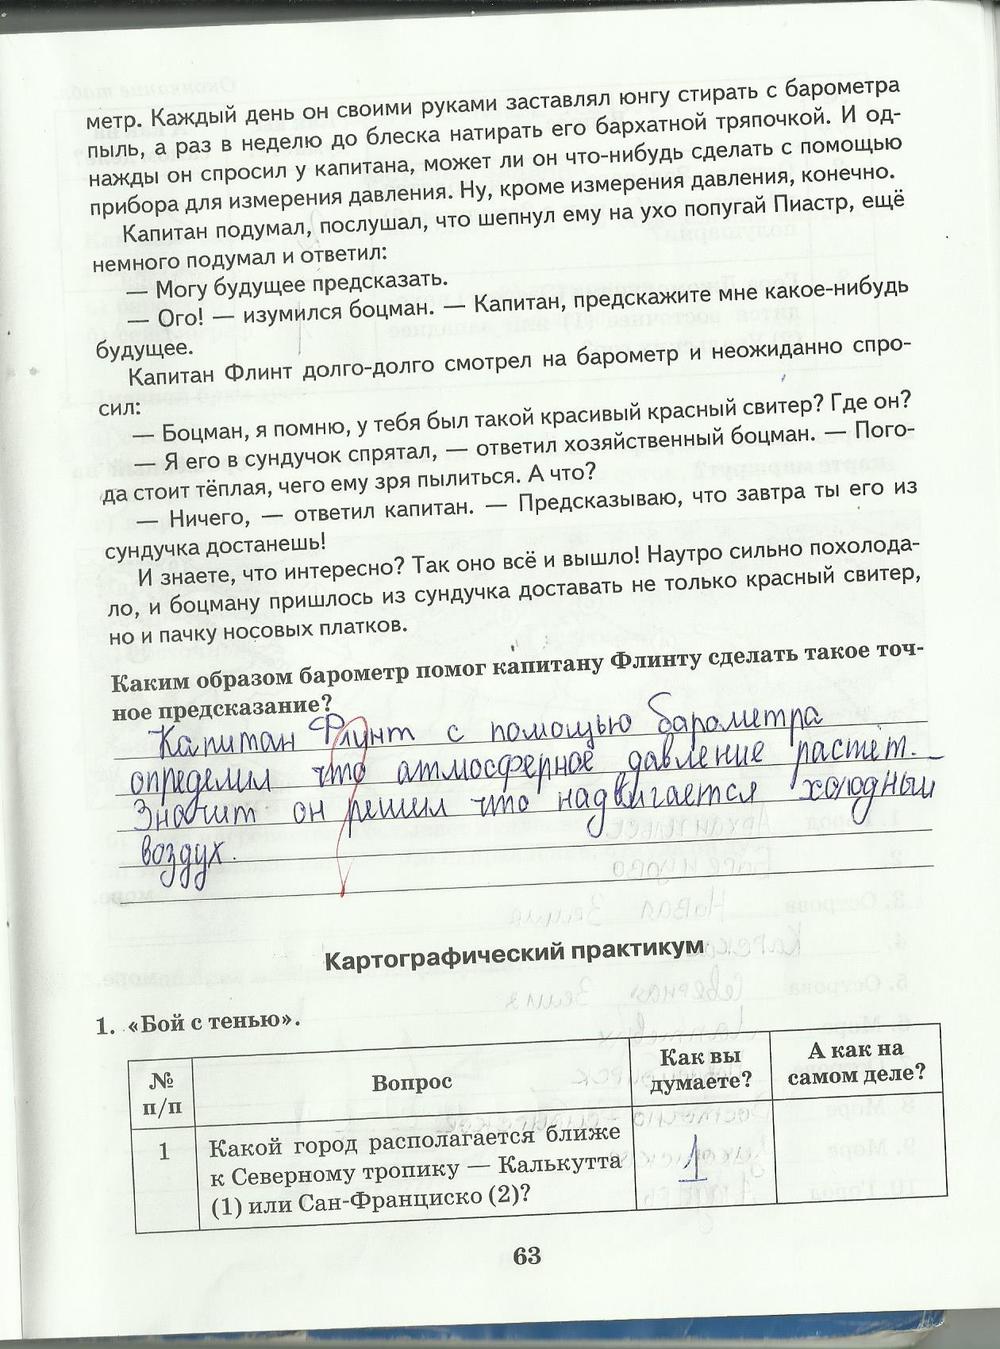 метр. Каждый день он своими руками заставлял юнгу стирать с барометра
пыль, а раз в неделю до блеска натирать его бархатной тряпочкой. И од-
нажды он спросил у капитана, может ли он что-нибудь сделать с помощью
прибора для измерения давления. Ну, кроме измерения давления, конечно.
Капитан подумал, послушал, что шепнул ему на ухо попугай Пиастр, ещё
немного подумал и ответил:
— Могу будущее предсказать.
— Ого! — изумился боцман. — Капитан, предскажите мне какое-нибудь
будущее.
Капитан Флинт долго-долго смотрел на барометр и неожиданно спро-
сил:
— Боцман, я помню, у тебя был такой красивый красный свитер? Где он?
— Я его в сундучок спрятал, — ответил хозяйственный боцман. — Пого-
да стоит тёплая, чего ему зря пылиться. А что?
— Ничего, — ответил капитан. — Предсказываю, что завтра ты его из
сундучка достанешь!
И знаете, что интересно? Так оно всё и вышло! Наутро сильно похолода-
ло, и боцману пришлось из сундучка доставать не только красный свитер,
но и пачку носовых платков.
Каким образом барометр помог капитану Флинту сделать такое точ-
ное предсказание?
Капитан Флинт с помощью барометра
определил что атмосферное давление растёт.
Значит он решил что надвигается холодный
воздух.
Картографический практикум
1. «Бой с тенью».
№ п/п
Вопрос
Как вы думаете?
А как на самом деле?
1
Какой город располагается ближе
к Северному тропику — Калькутта
(1) или Сан-Франциско (2)?
1
63